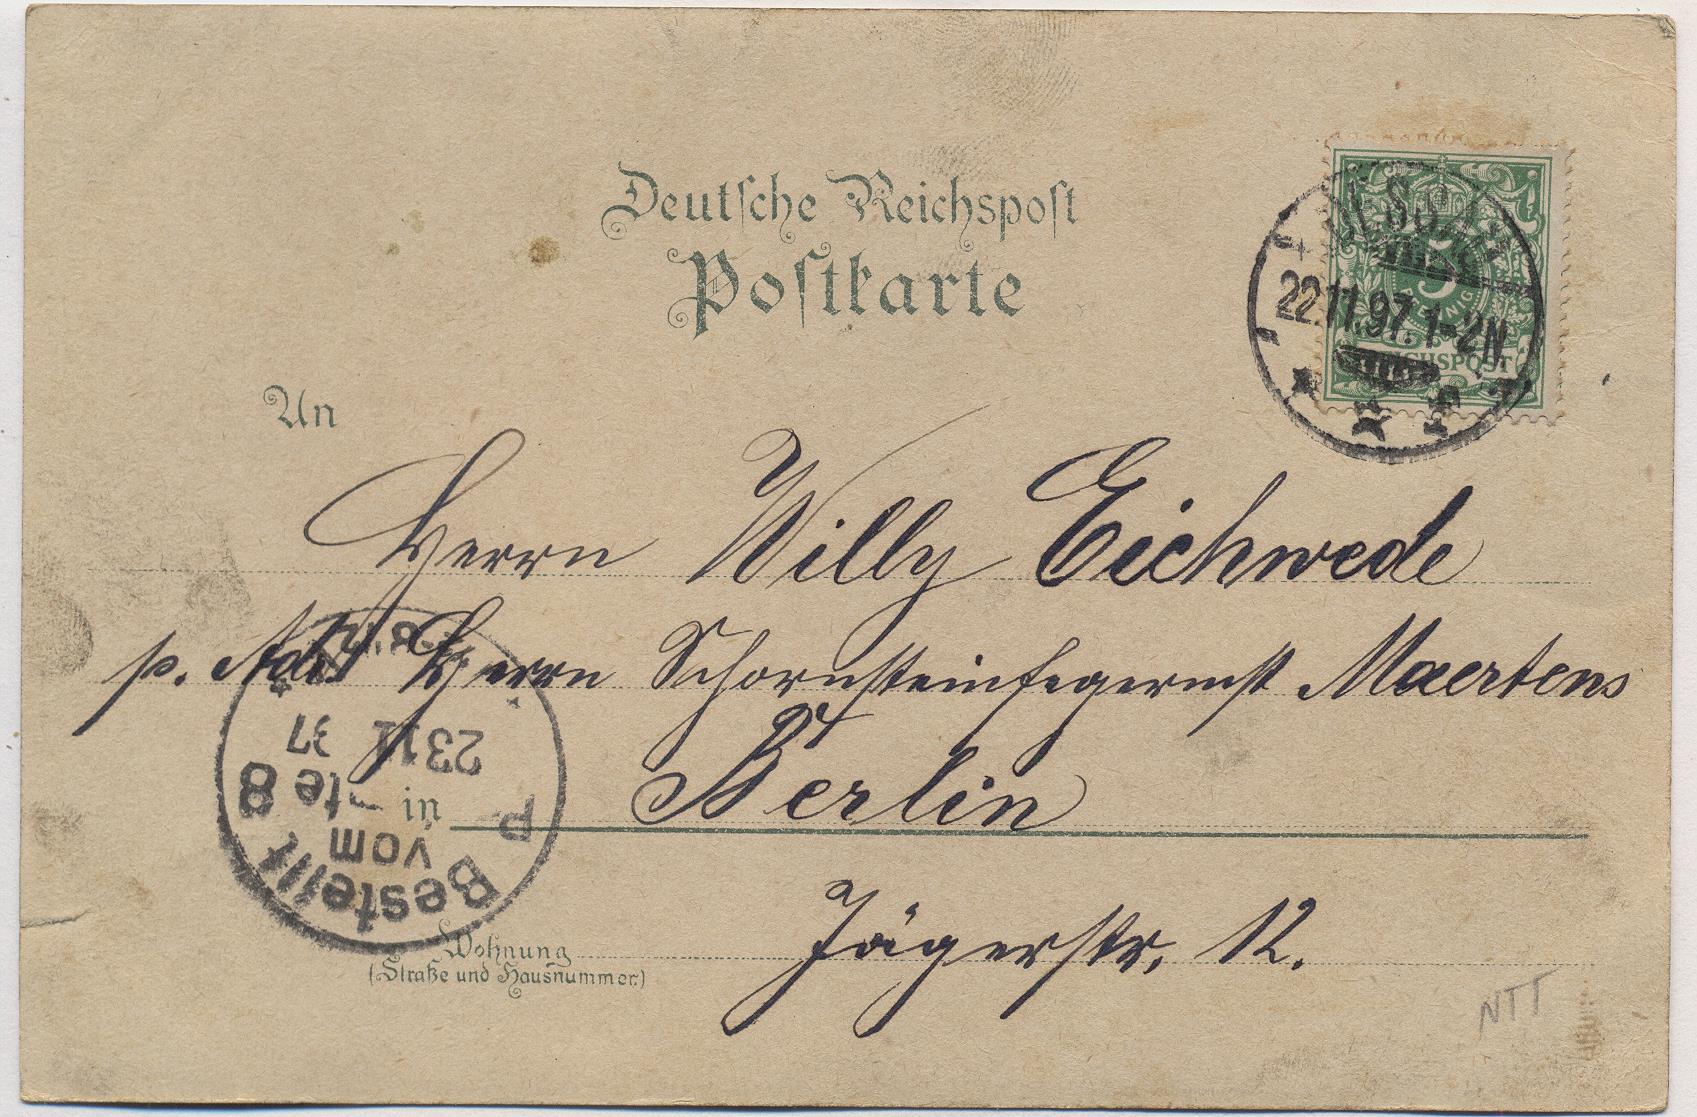 Deutsche Reichspost
Postkarte
DESSAU
22.11.97. 1-2N.
5
PFENNIG
REICHSPOST
An
Herrn Willy Eichwede
p. Adr. Herrn Schornsteinfegermst Maertens
in Berlin
Bestellt
vom
P
8
23 11 97
Wohnung
(Straße und Hausnummer.)
Jägerstr. 12.
NTT